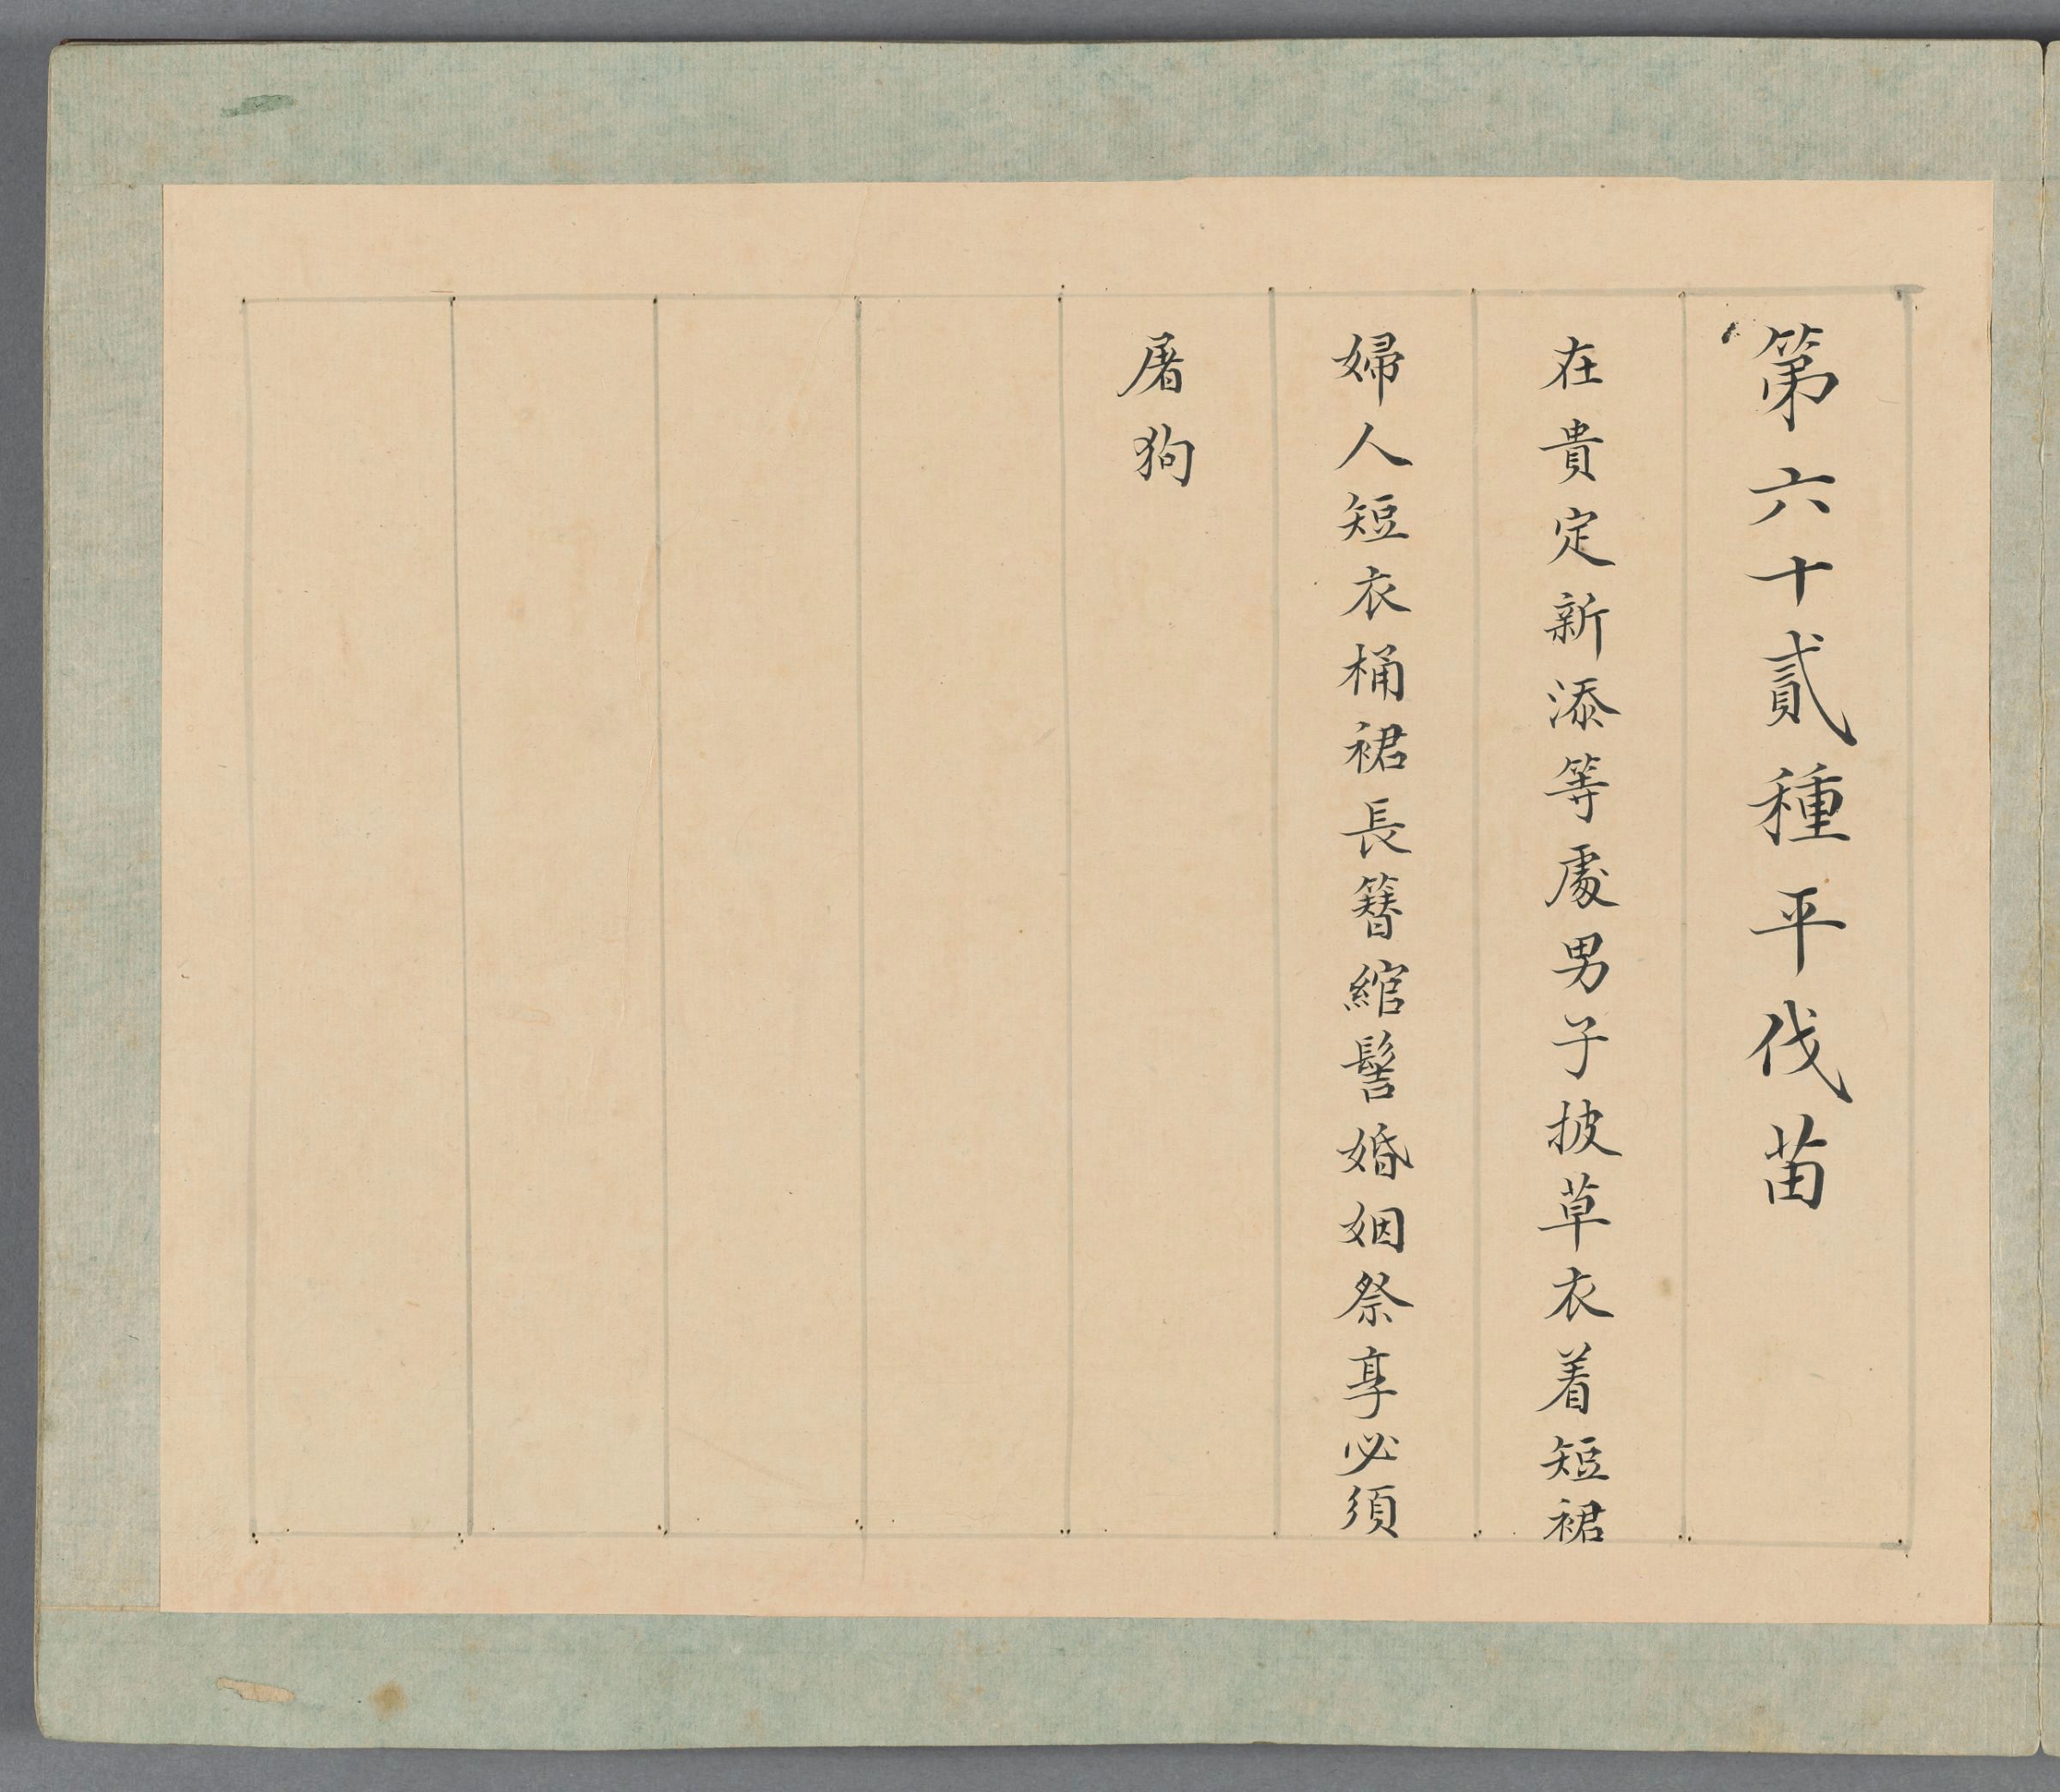 第六十貳種平伐苗
在貴定新添等處男子披草衣着短裙
婦人短衣桶裙長簪綰髻婚姻祭享必須
屠狗